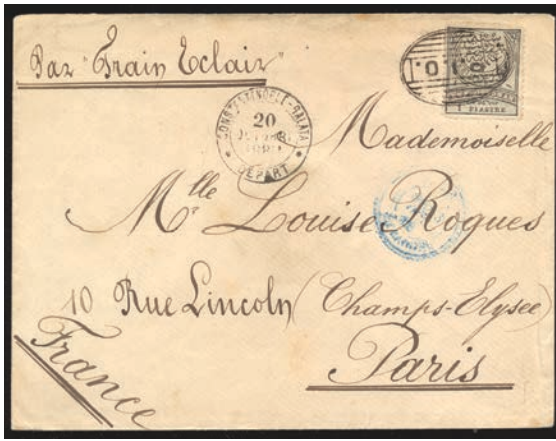 Par "Train Eclair"
I.O.
1 PIASTRE
CONSTANTINOPLE-GALATA
20
DÉPART
Mademoiselle
Mlle Louise Roques
10 Rue Lincoln (Champs-Elysée)
Paris
France